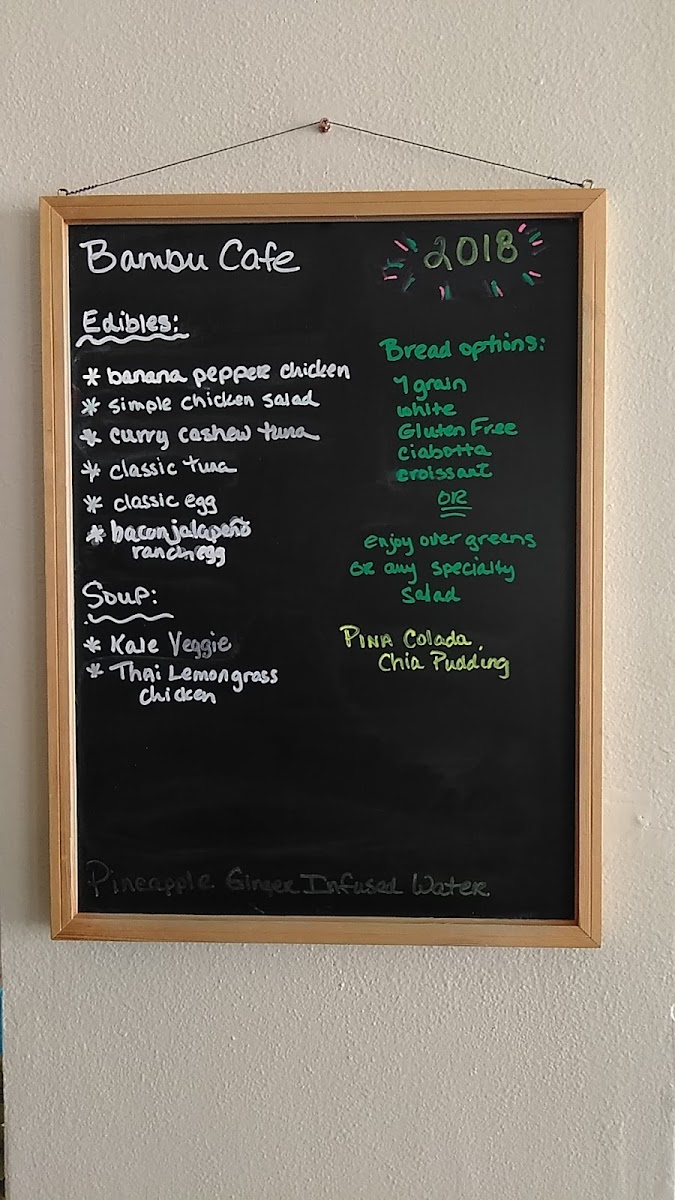 Bambu Cafe
2018
Edibles:
* banana pepper chicken
* simple chicken salad
* curry cashew tuna
* classic tuna
* classic egg
* bacon jalapeño
ranch egg
Soup:
* Kale Veggie
* Thai Lemongrass
chicken
Bread options:
9 grain
white
Gluten Free
ciabatta
croissant
OR
enjoy over greens
or any specialty
salad
PINA Colada
Chia Pudding
Pineapple Ginger Infused Water